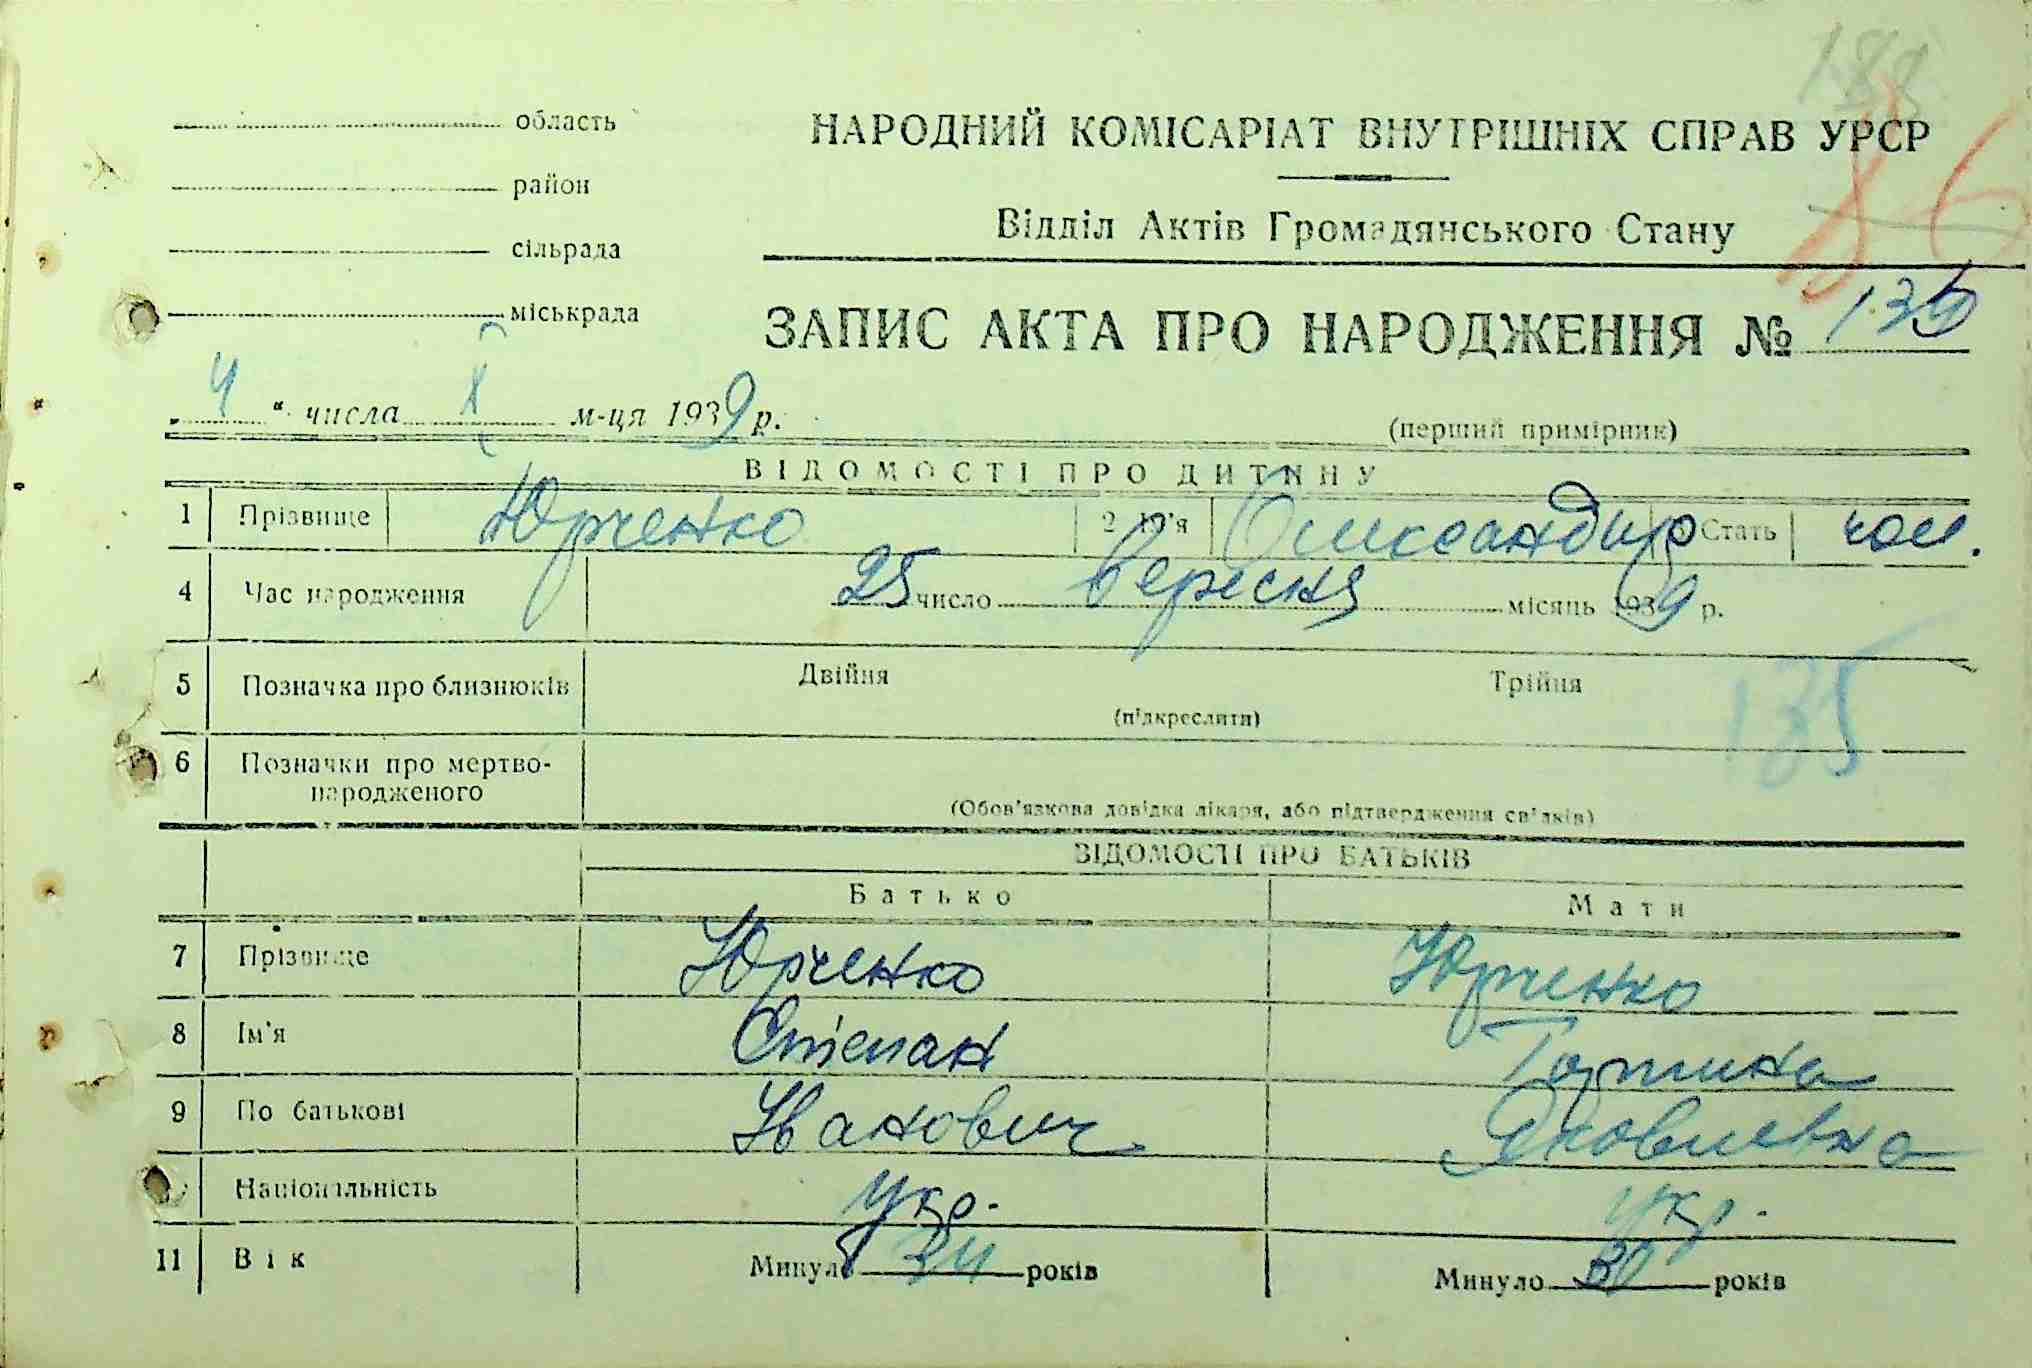 188
86
область
район
сільрада
міськрада
НАРОДНИЙ КОМІСАРІАТ ВНУТРІШНІХ СПРАВ УРСР
Відділ Актів Громадянського Стану
ЗАПИС АКТА ПРО НАРОДЖЕННЯ №
„4“ числа X м-ця 1939 р.
(перший примірник)
ВІДОМОСТІ ПРО ДИТИНУ
1 Прізвище Юрченко 2 Ім'я Олександир Стать чол.
4 Час народження 25 число вересня місяць 1939 р.
5 Позначка про близнюків Двійня Трійня
(підкреслити)
135
6 Позначки про мертво-
народженого
(Обов'язкова довідка лікаря, або підтвердження свідків)
ВІДОМОСТІ ПРО БАТЬКІВ
Батько Мати
7 Прізвище Юрченко Юрченко
8 Ім'я Степан
9 По батькові Іванович Яковлевна
Національність укр. укр.
11 Вік Минуло 34 років Минуло 30 років